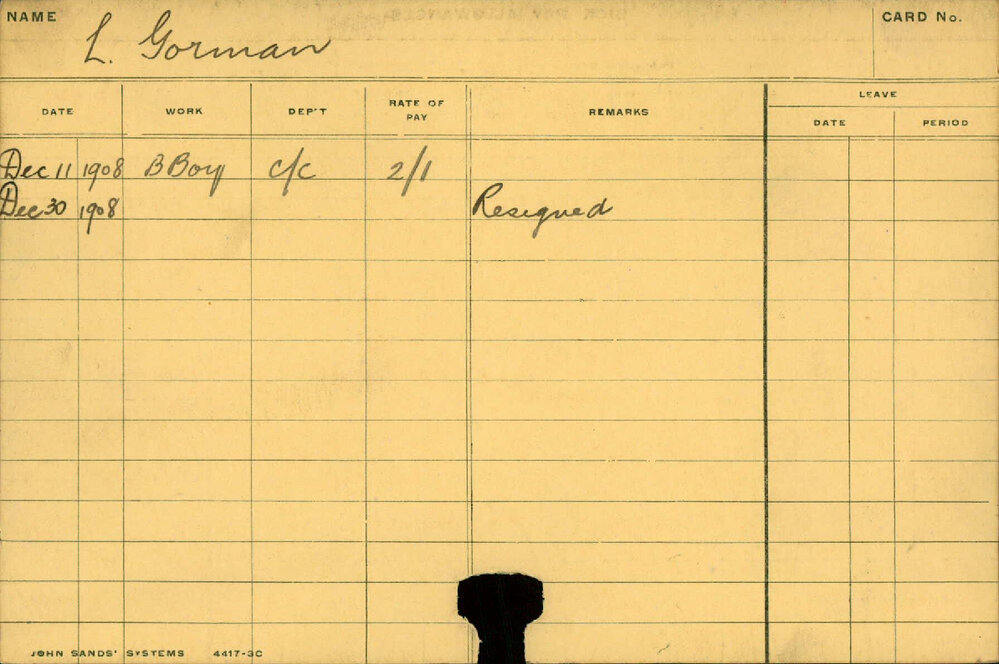 NAME
CARD No.
L. Gorman
DATE WORK DEP'T RATE OF PAY REMARKS LEAVE
DATE PERIOD
Dec 11 1908 B Boy c/c 2/1
Dec 30 1908 Resigned
JOHN SANDS' SYSTEMS 4417-3C